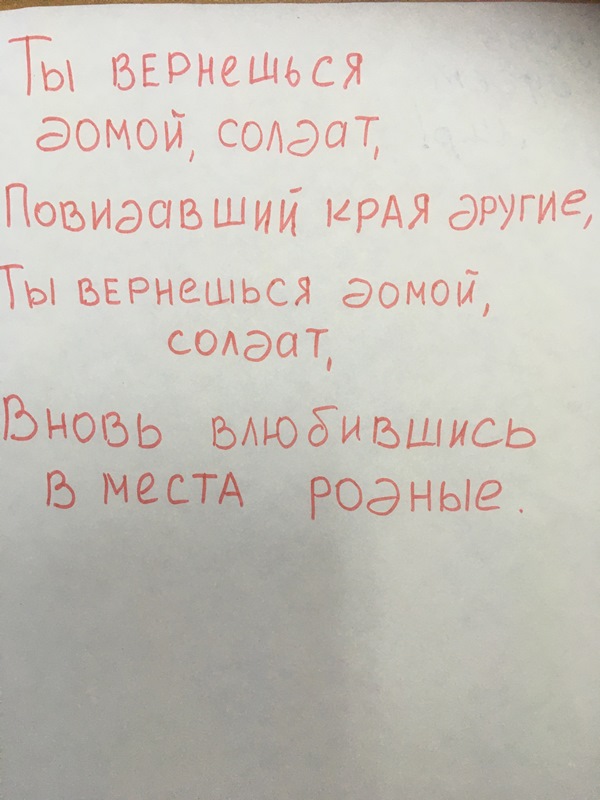 Ты вернешься
домой, солдат,
Повидавший края другие,
Ты вернешься домой,
солдат,
Вновь влюбившись
в места родные.